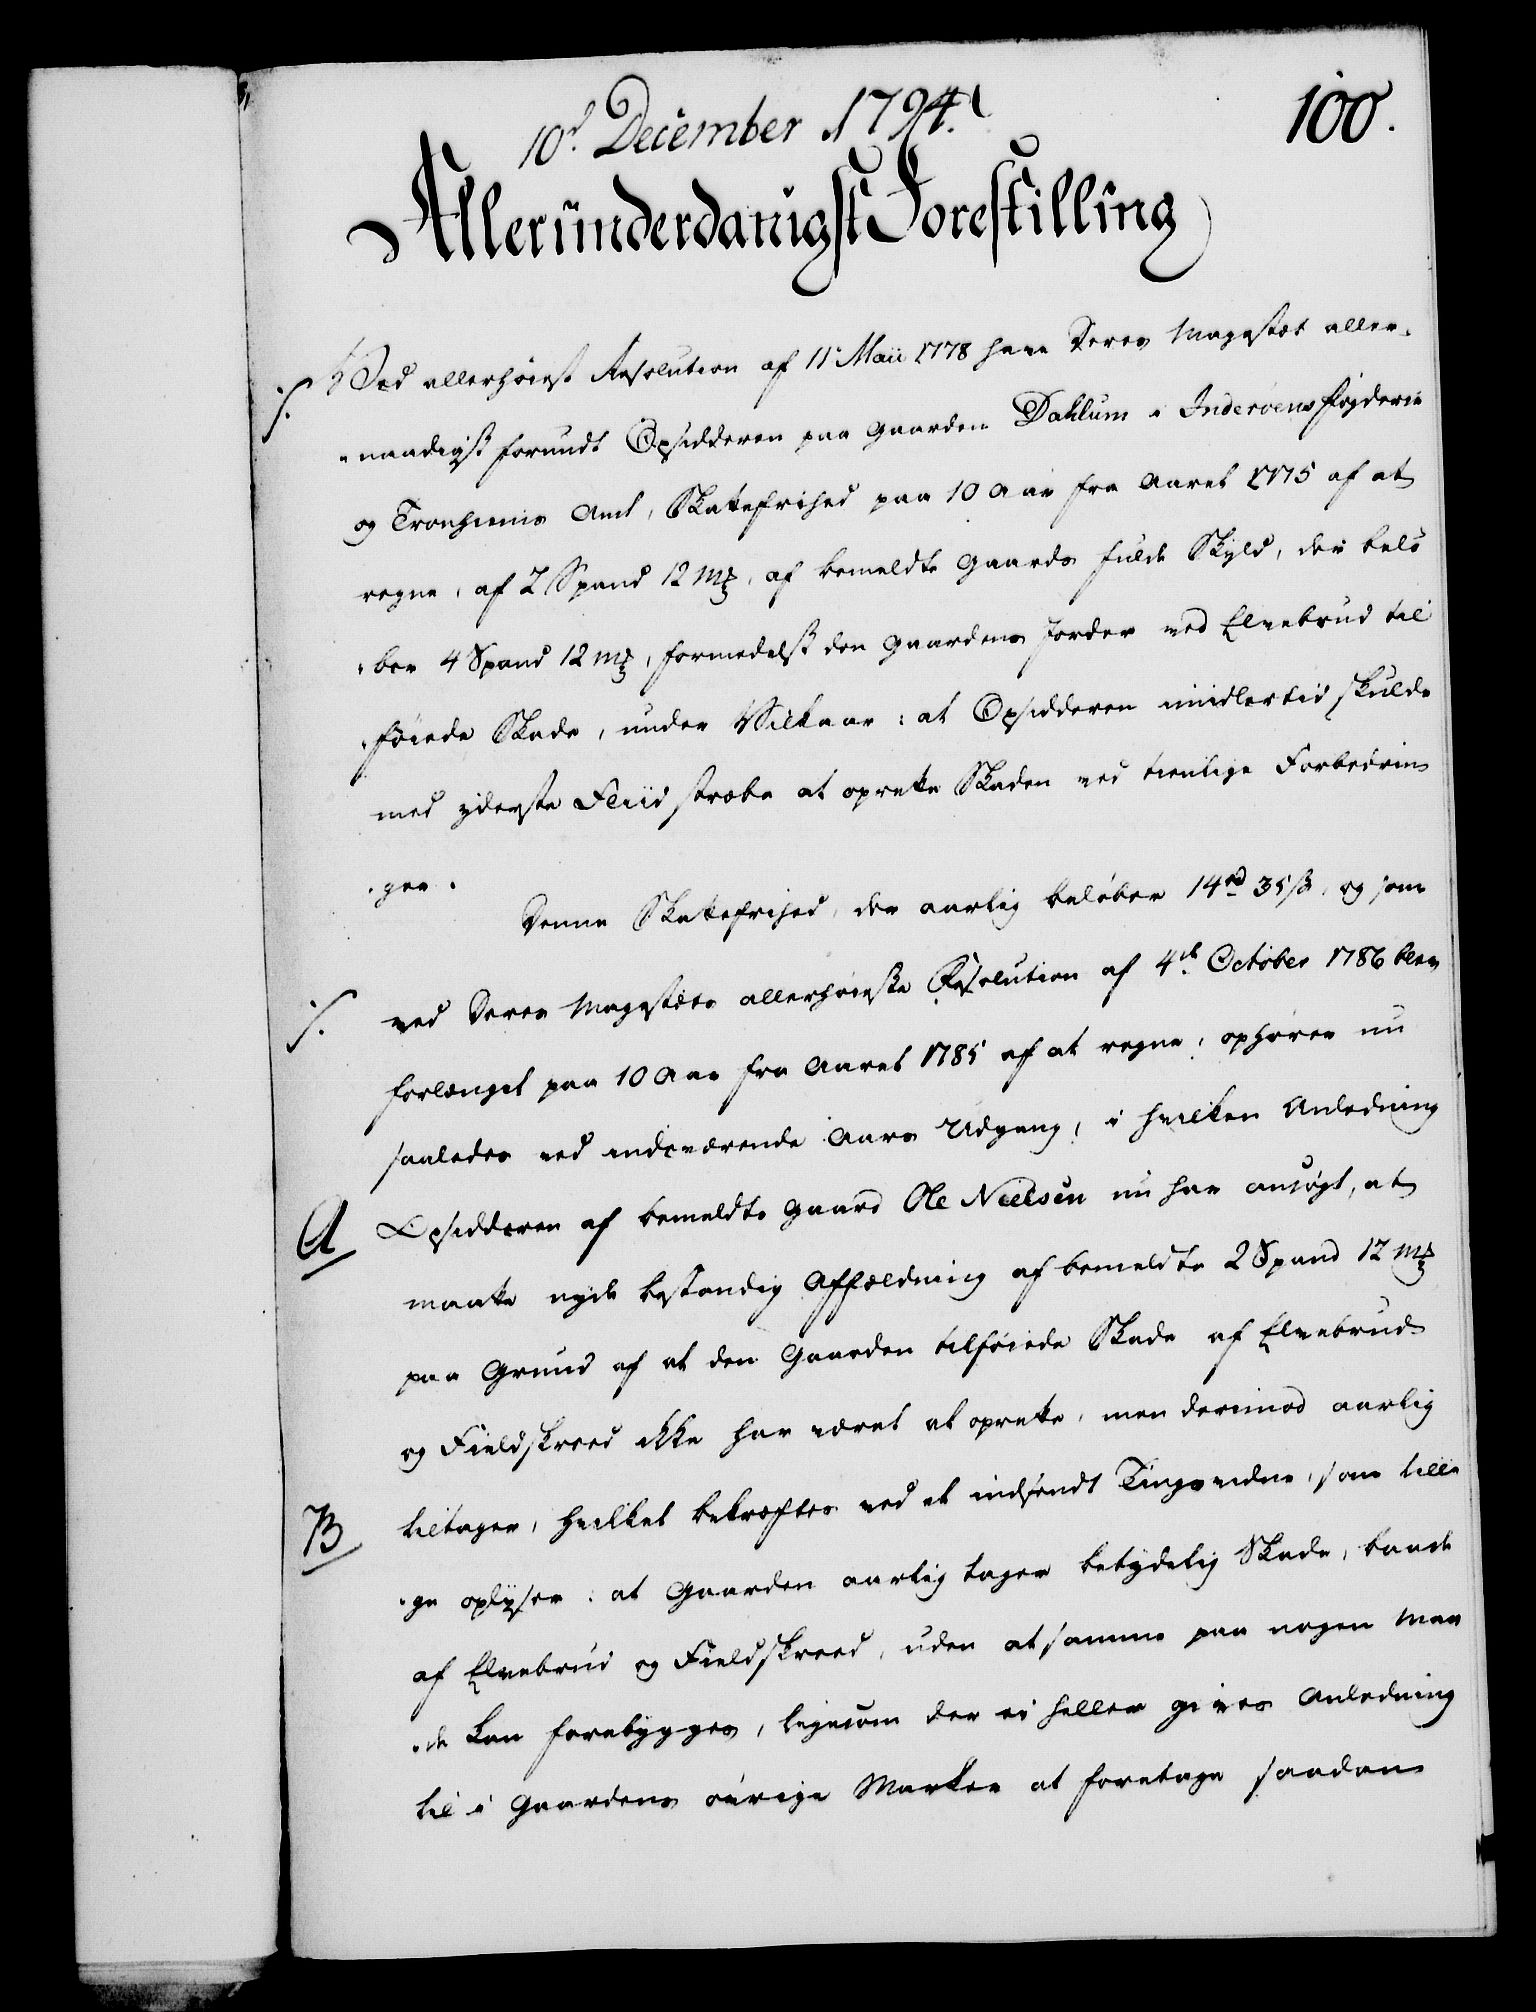 10d December 1794.
100.
Alleründerdanigst Forestilling
Ved allerhöiest Resolution af 11 Maii 1778 have Deres Majestæt aller-
·/.
-naadigst forundt Opsidderen paa Gaarden Dahlum i Inderöens Fogderie
og Tronhiems Amt, Skattefrihed paa 10 Aar fra Aaret 1775 af at
regne, af 2 Spand 12 Mk, af bemeldte Gaards fulde Skyld, der belö
-ber 4 Spand 12 Mk, formedelst den Gaardens Jorder ved Elvebrud til
-föiede Skade, under Vilkaar: at Opsidderen imidlertid skulde
med yderste Fliid stræbe at oprette Skaden ved tienlige Forbedrin
-ger.
Denne Skattefrihed, der aarlig belöber 14rd 35 ß, og som
·/.
ved Deres Majestets allerhöieste Resolution af 4de October 1786 blev
forlænget paa 10 Aar fra Aaret 1785 af at regne, ophörer nu
saaledes ved indeværende Aars Udgang, i hvilken Anledning
A
Opsidderen af bemeldte Gaard Ole Nielsen nu har ansögt, at
maatte nyde bestandig Affældning af bemeldte 2 Spand 12 Mk
paa Grund af at den Gaarden tilföiede Skade af Elvebrud
og Fieldskreed ikke har været at oprette, men derimod aarlig
B
tiltager, hvilket bekræftes ved et indsendt Tingsvidne, som tilli
-ge oplyser: at Gaarden aarlig tager betydelig Skade, baade
af Elvebrud og Fieldskreed, uden at samme paa nogen Maa
-de kan forebygges, ligesom der ei heller gives Anledning
til i Gaardens övrige Marker at foretage saadan